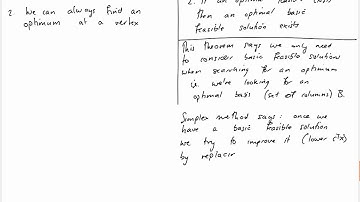 2. We can always find an
optimum at a vertex
2. If an optimal
then an optimal basic
feasible solution exists
This theorem says we only need
to consider basic feasible solutions
when searching for an optimum
i.e. we're looking for an
optimal basis (set of columns) B.
Simplex method says: once we
have a basic feasible solution
we try to improve it (lower cᵀx)
by replacin